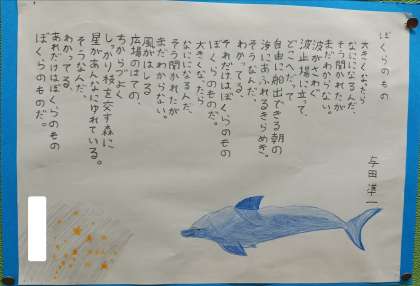 ぼくらのもの
与田準一
大きくなったら
なにになるんだ、
そう聞かれたが
まだわからない。
波がさわぐ
波止場に立って、
どこへだって
自由に船出できる朝の
海にあふれるきらめき。
そうなんだ、
わかってる、
それだけはぼくらのもの
ぼくらのものだ。
大きくなったら、
なにになるんだ、
そう聞かれたが
まだわからない。
風がはしる
広場のはての、
ちからづよく
しっかり枝を交す森に
星があんなにゆれている。
そうなんだ、
わかってる、
あれだけはぼくらのもの
ぼくらのものだ。